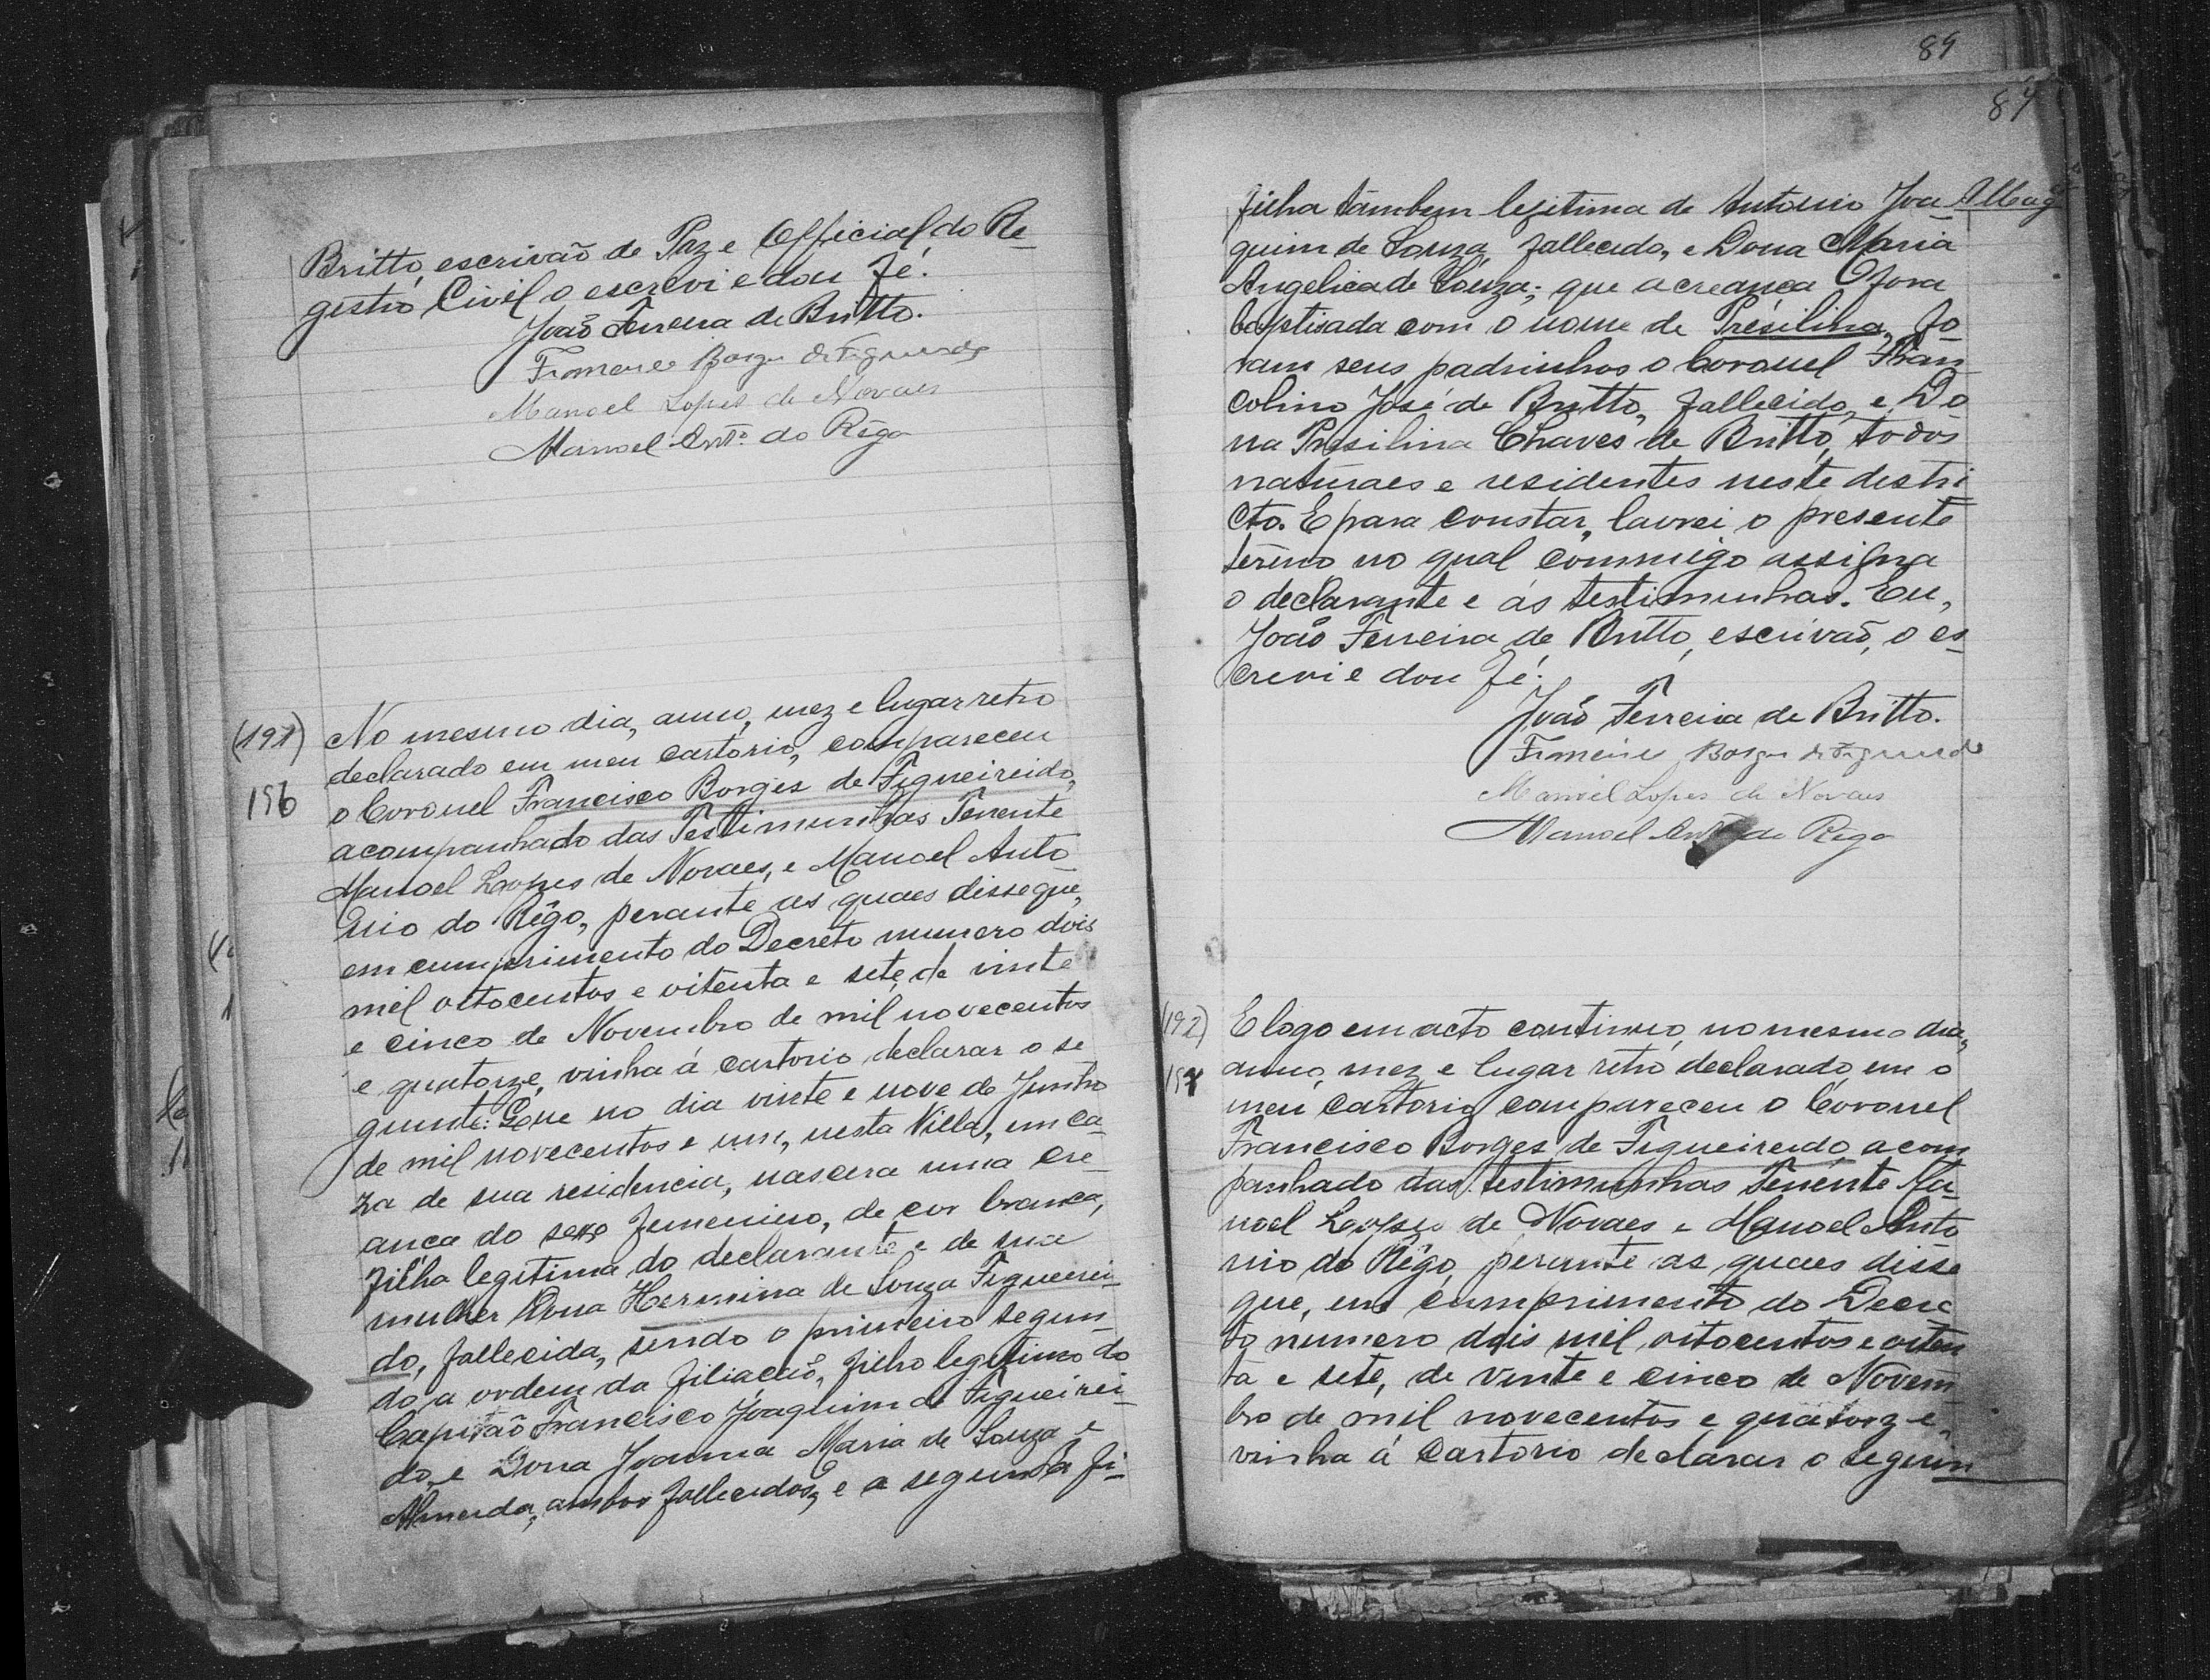 Britto, escrivaõ de Paz e Official do Re-
gistro Civil o escrevi e dou fé.
João Ferreira de Britto.
Borges de Figueiredo
Manoel Lopes de Novaes
Manoel Antº do Rêgo
(191)
156
No mesmo dia, anno, mez e lugar retro
declarado em meu cartorio, compareceu
o Coronel Francisco Borges de Figueireido,
acompanhado das Testimunhas Tenente
Manoel Lopes de Novaes, e Manoel Anto
nio do Rêgo, perante as quaes disse que,
em cumprimento do Decreto numero dois
mil oitocentos e oitenta e sete, de vinte
e cinco de Novembro de mil novecentos
e quatorze, vinha á cartorio declarar o se
guinte: Que no dia vinte e nove de Junho
de mil novecentos e um, nesta Villa, em ca-
za de sua residencia, nascera uma cre-
ança do sexo femenino, de cor branca,
filha legitima do declarante e de sua
mulher Dona Hermina de Souza Figueirei-
do, fallecida, sendo o primeiro segun-
do a ordem da filiacão, filho legitimo do
Capitaõ Francisco Joaquim de Figueirei-
do, e Dona Joanna Maria de Souza e
Almeida, ambos fallecidos, e a segunda fi-
89
89
filha tambem legitima de Antonio Joa
quim de Souza, fallecido, e Dona Maria
Angelica de Souza; que a creança fora
baptisada com o nome de Presilina, fo-
ram seus padrinhos o Coronel Fran-
colino José de Britto, fallecido, e Do
na Presilina Chaves de Britto, todos
naturaes e residentes neste destri
cto. E para constar, lavrei o presente
termo no qual commigo assigna
o declarante e as testimunhas. Eu,
João Ferreira de Britto, escrivaõ, o es-
crevi e dou fé.
João Ferreira de Britto.
Borges de Figueiredo
Manoel Lopes de Novaes
Manoel Antº do Rego
(192)
157
E logo em acto continuo, no mesmo dia,
anno, mez e lugar retro declarado, em o
meu cartorio compareceu o Coronel
Francisco Borges de Figueireido, acom
panhado das testimunhas Tenente Ma-
noel Lopes de Novaes, e Manoel Anto
nio do Rêgo, perante as quaes disse
que, em cumprimento do Decre
to numero dois mil oitocentos e oiten
ta e sete, de vinte e cinco de Novem
bro de mil novecentos e quatorze,
vinha á cartorio declarar o seguin